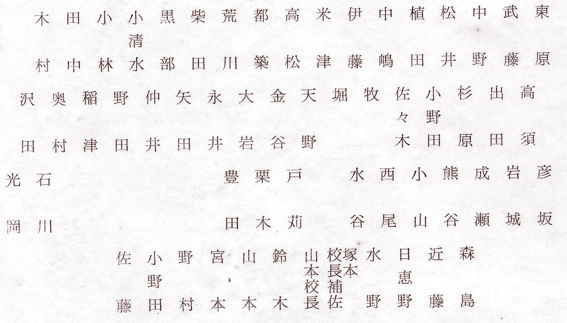 東原
武藤
中野
松井
植田
中嶋
伊藤
米津
高松
都築
荒川
柴田
黒部
小清水
小林
田中
木村
高須
出田
杉原
小野田
佐々木
牧
堀
天野
金谷
大岩
永井
矢田
仲井
野田
稲津
奥村
沢田
彦坂
岩城
成瀬
熊谷
小山
西尾
水谷
戸苅
栗木
豊田
石川
光岡
森島
近藤
日恵野
水野
塚本
校長補佐
山本校長
鈴木
山本
宮本
野村
小野田
佐藤